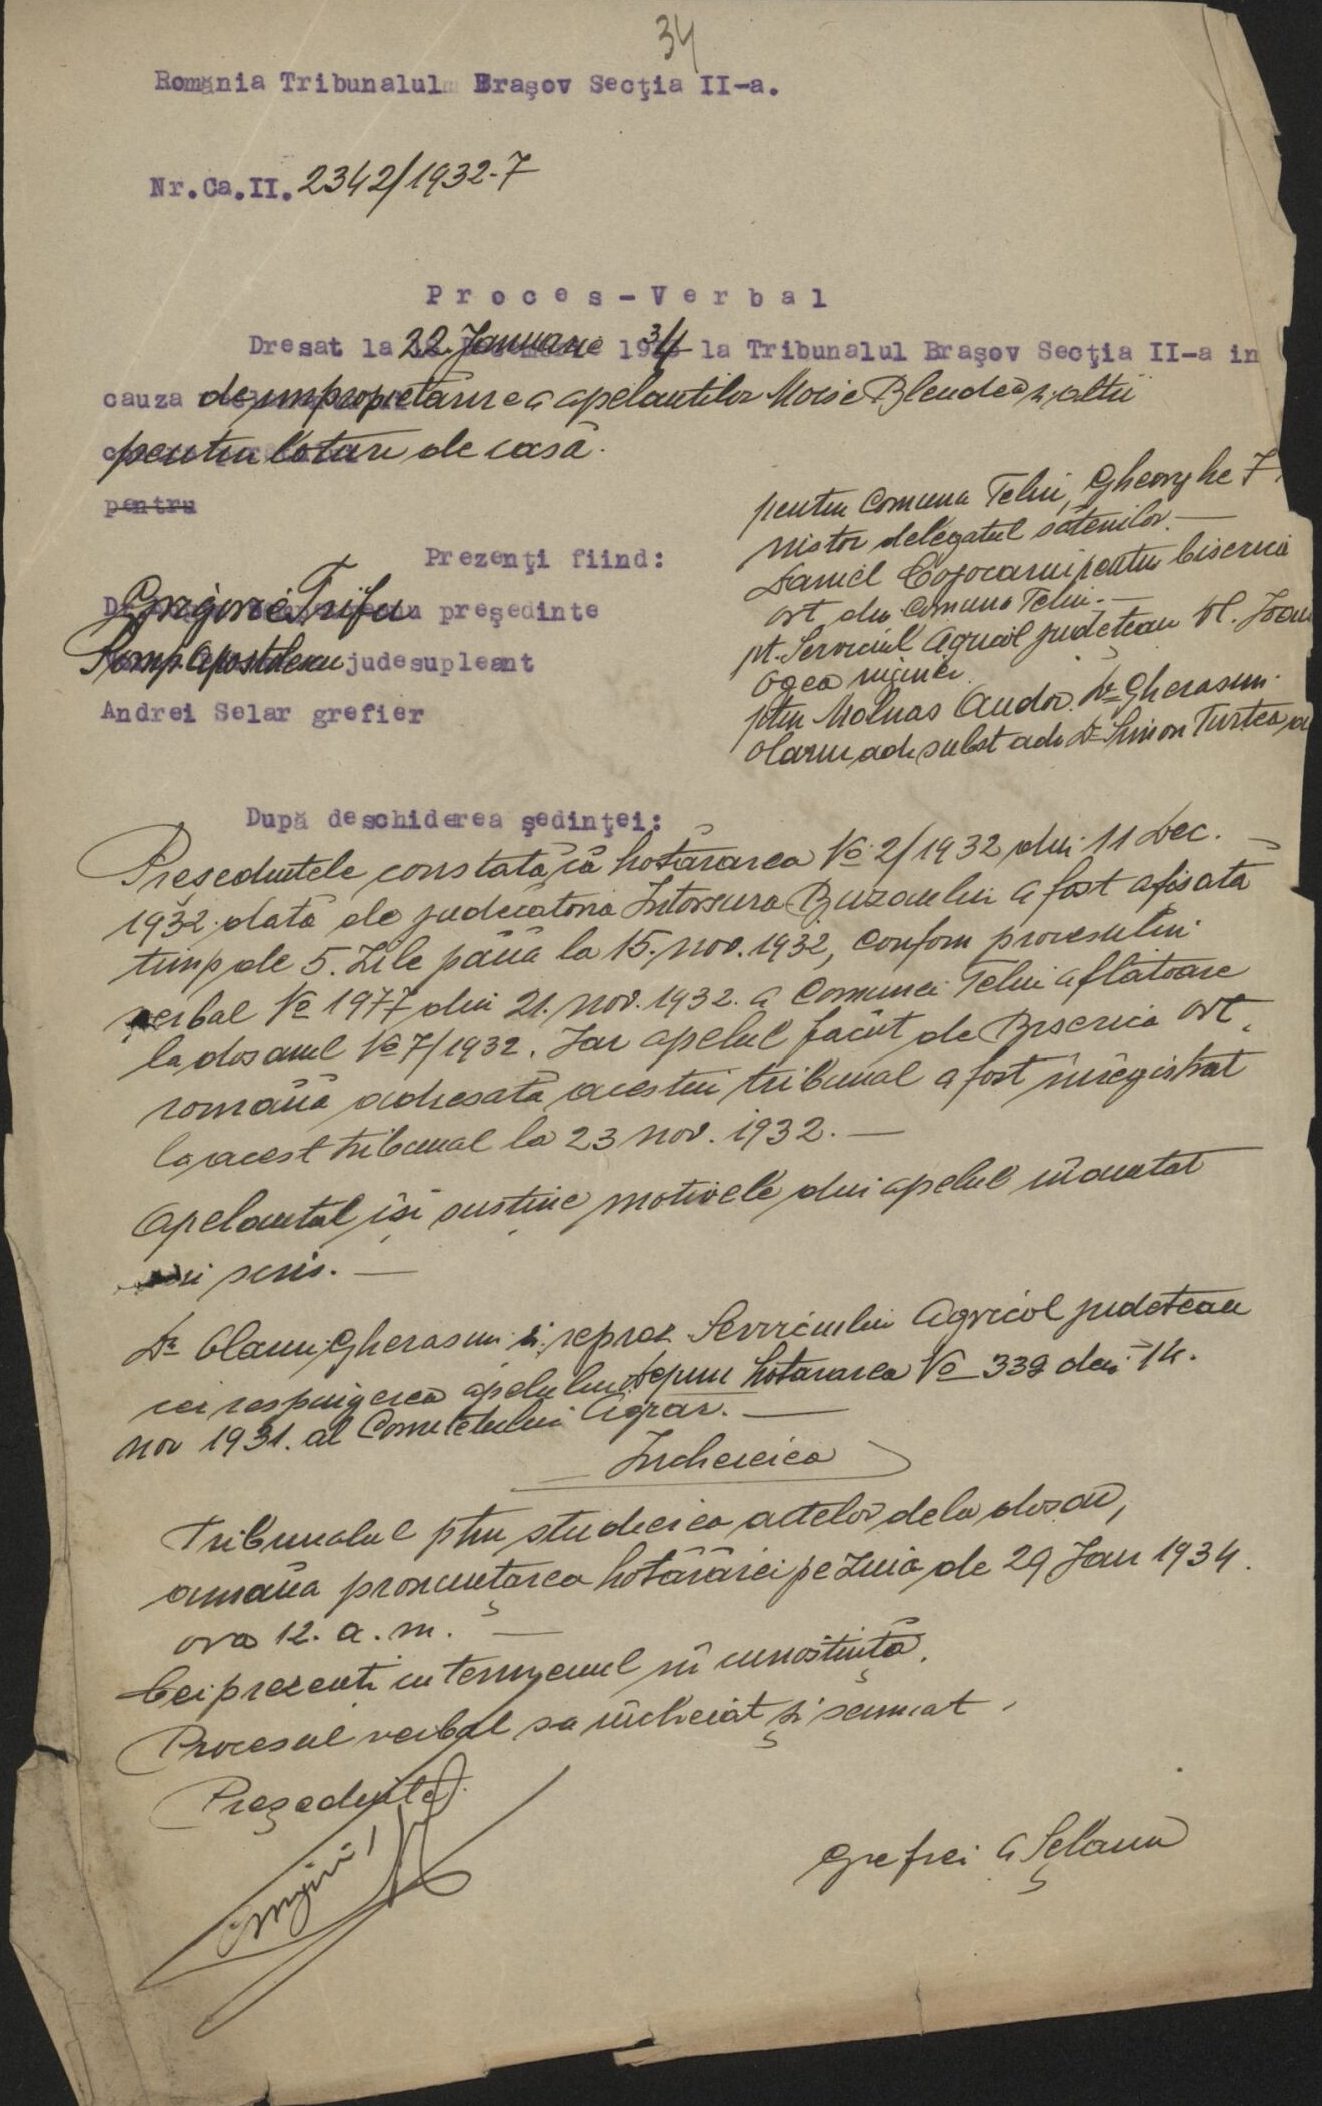 34
România Tribunalul Braşov Secţia II-a.
Nr.Ca.II. 2342/1932-7
Proces-Verbal
Dresat la 22 Januarie 1934 la Tribunalul Braşov Secţia II-a in
cauza de improprietărirea apelantilor Moise Blendea și altii
pentru lotari de casă.
pentru
Prezenţi fiind:
Grigorie Trifu preşedinte
Pomp Apostolescu judesupleant
Andrei Selar grefier
pentru Comuna Teliu, Gheorghe I.
Nistor delegatul sătenilor.—
Daniel Cojocariu pentru biserica
ort din Comuna Teliu.—
pt. Serviciul Agricol județean Dl. Ioan
Ogea inginer
ptru Molnas Andor. Dr Gherasim
Olariu adv subst adv Dr Simion Turtea
După deschiderea şedinţei:
Președintele constată că hotărârea No 2/1932 din 11 Dec.
1932 dată de judecătoria Intorsura Buzaului a fost afisată
timp de 5. Zile până la 15. nov. 1932, conform procesului
verbal No 1977 din 21. nov. 1932. a Comunei Teliu aflătoare
la dosarul No 7/1932. Iar apelul făcut de Biserica ort.
română adresată acestui tribunal a fost inregistrat
la acest tribunal la 23 nov. 1932.—
Apelantul își susține motivele din apelul inaintat
in scris.—
Dr Olariu Gherasim și reprez. Serviciului Agricol judetean
cer respingerea apelului. Depun hotararea No 339 din 14.
nov 1931. al Comitetului Agrar.—
Incheierea
Tribunalul ptru studierea actelor dela dosar,
amână pronunțarea hotărârei pe Ziua de 29 Jan 1934.
ora 12. a. m.—
Cei prezenti cu termenul in cunostință.
Procesul verbal sa incheiat și semnat.
Președinte.
Grefier A Șelariu